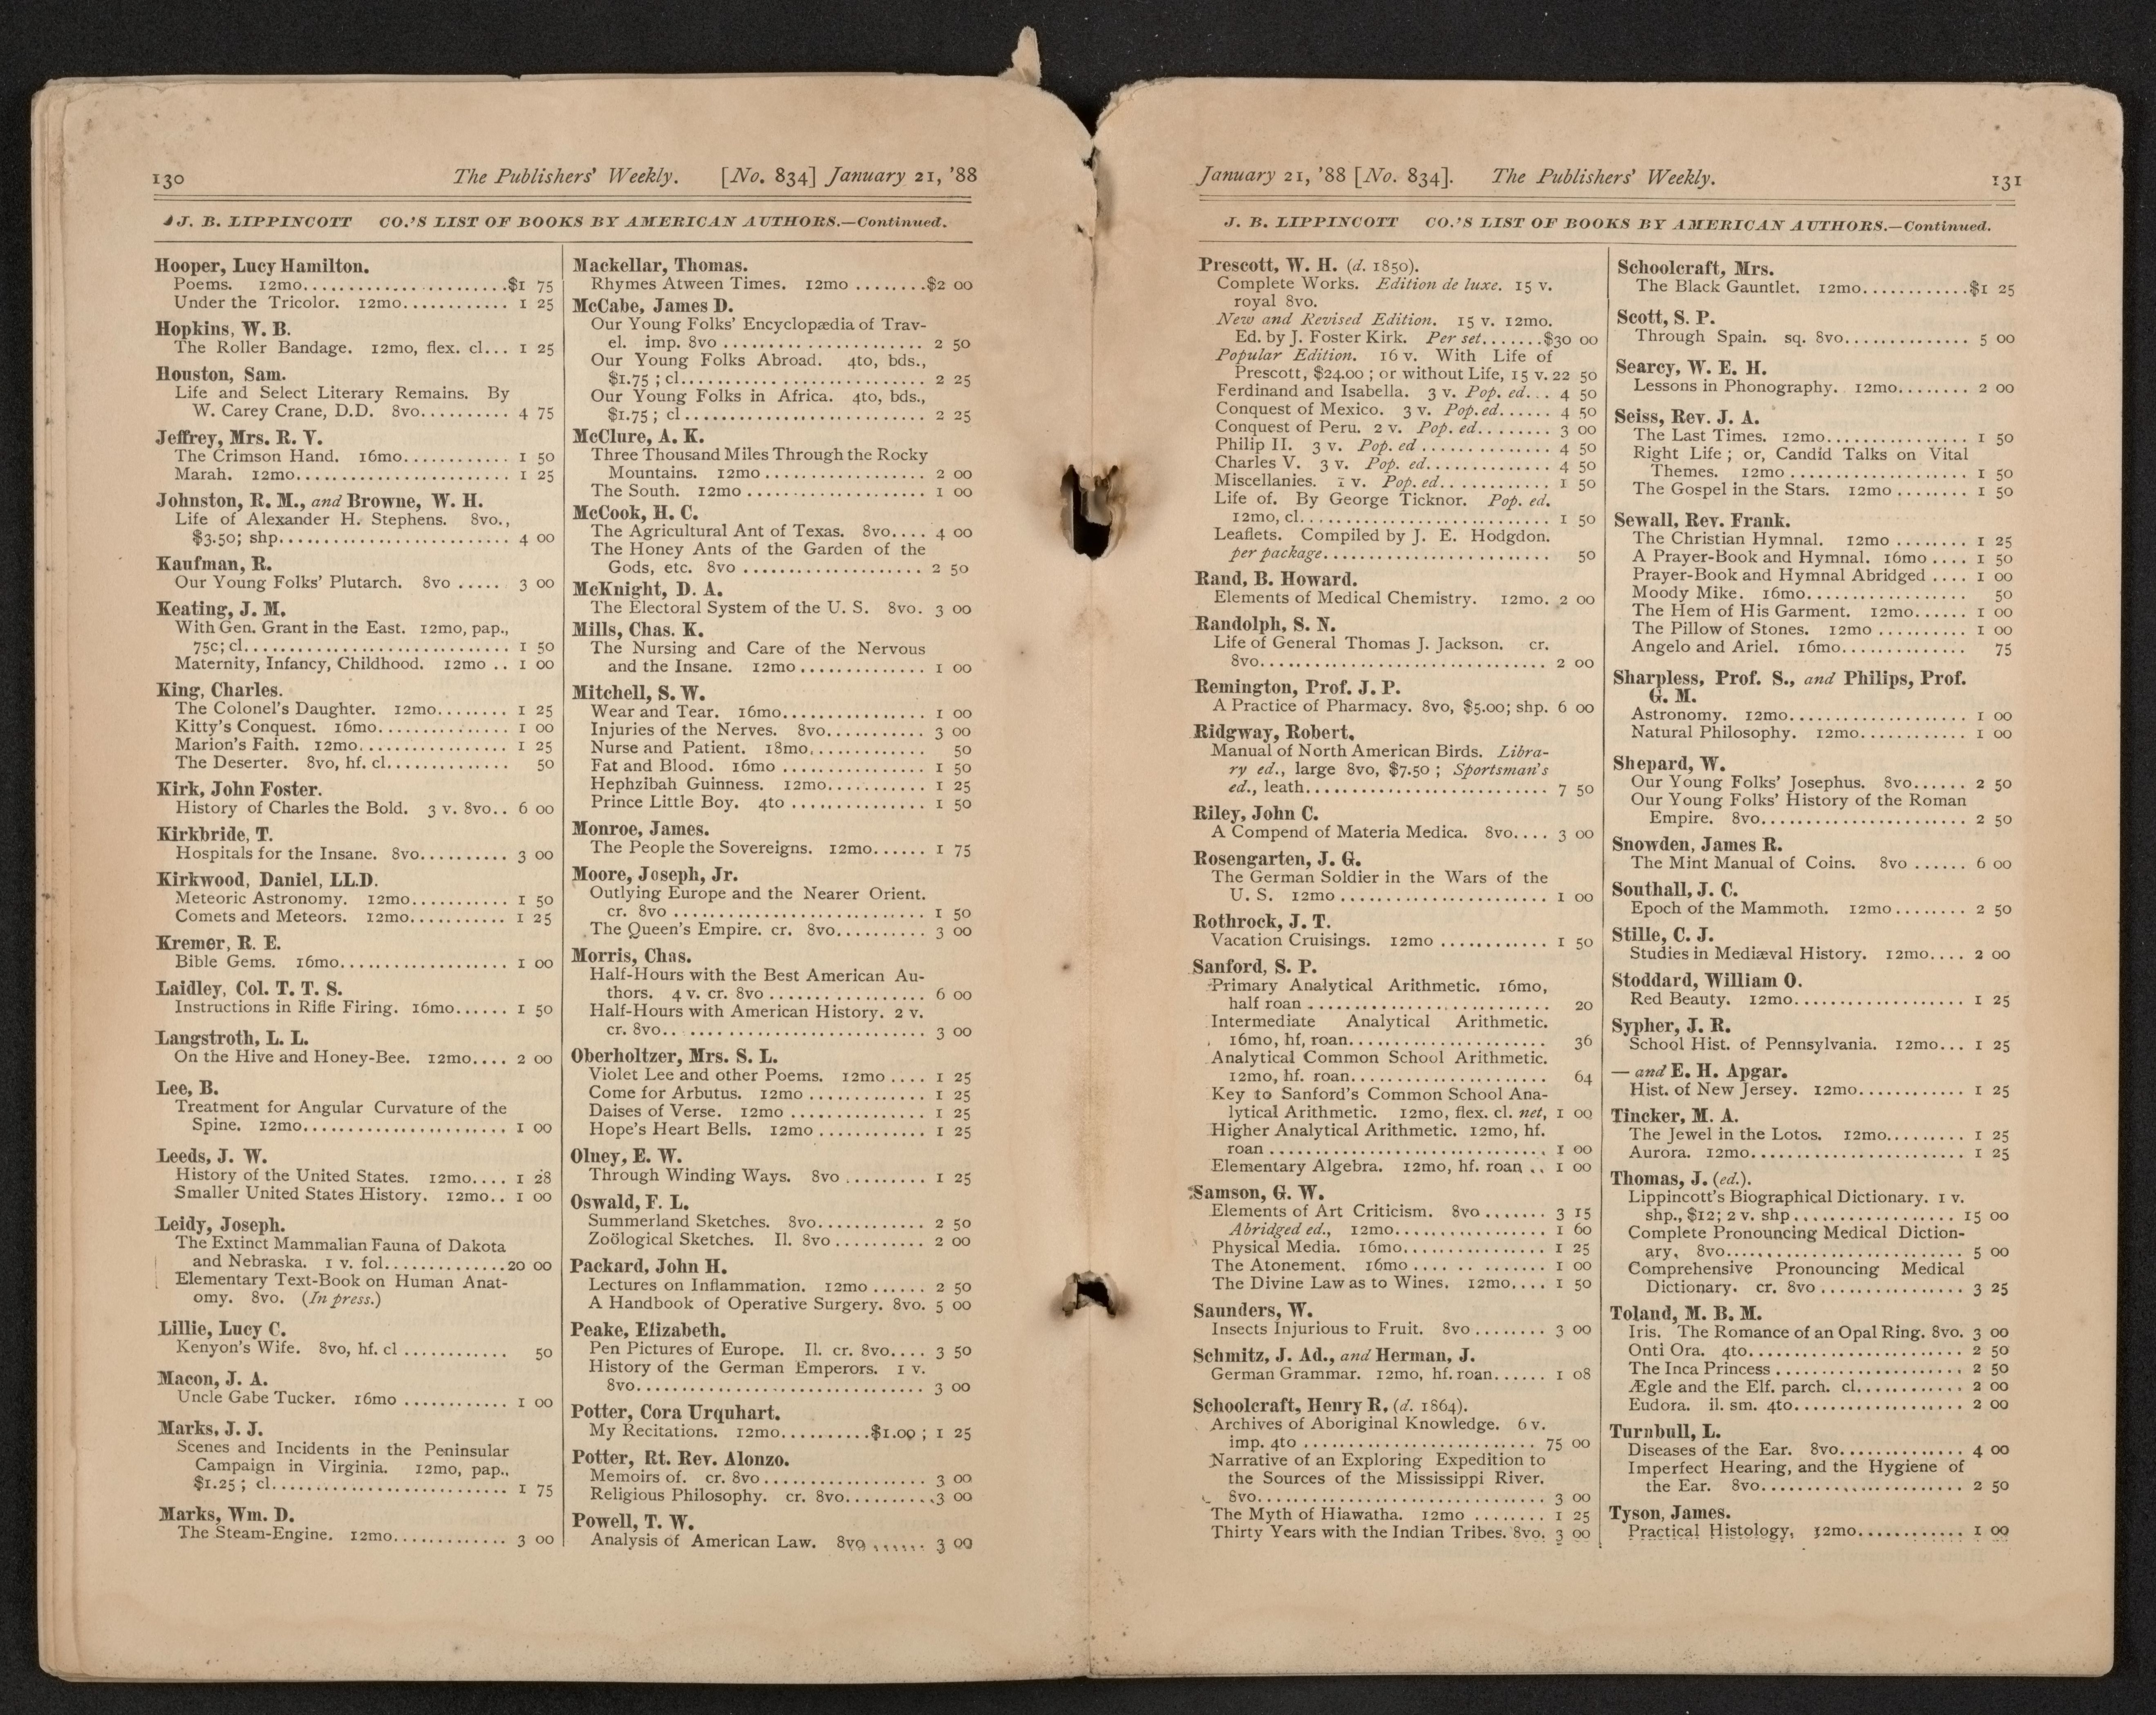 130
The Publishers' Weekly. [No. 834] January 21, '88
J. B. LIPPINCOTT CO.'S LIST OF BOOKS BY AMERICAN AUTHORS.—Continued.
Hooper, Lucy Hamilton.
Poems. 12mo........................$1 75
Under the Tricolor. 12mo............ 1 25
Hopkins, W. B.
The Roller Bandage. 12mo, flex. cl... 1 25
Houston, Sam.
Life and Select Literary Remains. By
W. Carey Crane, D.D. 8vo.......... 4 75
Jeffrey, Mrs. R. V.
The Crimson Hand. 16mo............ 1 50
Marah. 12mo........................ 1 25
Johnston, R. M., and Browne, W. H.
Life of Alexander H. Stephens. 8vo.,
$3.50; shp.......................... 4 00
Kaufman, R.
Our Young Folks' Plutarch. 8vo ..... 3 00
Keating, J. M.
With Gen. Grant in the East. 12mo, pap.,
75c; cl.............................. 1 50
Maternity, Infancy, Childhood. 12mo .. 1 00
King, Charles.
The Colonel's Daughter. 12mo........ 1 25
Kitty's Conquest. 16mo............... 1 00
Marion's Faith. 12mo................. 1 25
The Deserter. 8vo, hf. cl.............. 50
Kirk, John Foster.
History of Charles the Bold. 3 v. 8vo.. 6 00
Kirkbride, T.
Hospitals for the Insane. 8vo.......... 3 00
Kirkwood, Daniel, LL.D.
Meteoric Astronomy. 12mo........... 1 50
Comets and Meteors. 12mo........... 1 25
Kremer, R. E.
Bible Gems. 16mo................... 1 00
Laidley, Col. T. T. S.
Instructions in Rifle Firing. 16mo...... 1 50
Langstroth, L. L.
On the Hive and Honey-Bee. 12mo.... 2 00
Lee, B.
Treatment for Angular Curvature of the
Spine. 12mo....................... 1 00
Leeds, J. W.
History of the United States. 12mo.... 1 28
Smaller United States History. 12mo.. 1 00
Leidy, Joseph.
The Extinct Mammalian Fauna of Dakota
and Nebraska. 1 v. fol..............20 00
Elementary Text-Book on Human Anat-
omy. 8vo. (In press.)
Lillie, Lucy C.
Kenyon's Wife. 8vo, hf. cl ............ 50
Macon, J. A.
Uncle Gabe Tucker. 16mo ............ 1 00
Marks, J. J.
Scenes and Incidents in the Peninsular
Campaign in Virginia. 12mo, pap.,
$1.25; cl........................... 1 75
Marks, Wm. D.
The Steam-Engine. 12mo............. 3 00
Mackellar, Thomas.
Rhymes Atween Times. 12mo ........$2 00
McCabe, James D.
Our Young Folks' Encyclopædia of Trav-
el. imp. 8vo ....................... 2 50
Our Young Folks Abroad. 4to, bds.,
$1.75; cl............................ 2 25
Our Young Folks in Africa. 4to, bds.,
$1.75; cl............................ 2 25
McClure, A. K.
Three Thousand Miles Through the Rocky
Mountains. 12mo .................. 2 00
The South. 12mo .................... 1 00
McCook, H. C.
The Agricultural Ant of Texas. 8vo.... 4 00
The Honey Ants of the Garden of the
Gods, etc. 8vo .................... 2 50
McKnight, D. A.
The Electoral System of the U. S. 8vo. 3 00
Mills, Chas. K.
The Nursing and Care of the Nervous
and the Insane. 12mo.............. 1 00
Mitchell, S. W.
Wear and Tear. 16mo................ 1 00
Injuries of the Nerves. 8vo........... 3 00
Nurse and Patient. 18mo............. 50
Fat and Blood. 16mo ................ 1 50
Hephzibah Guinness. 12mo........... 1 25
Prince Little Boy. 4to ............... 1 50
Monroe, James.
The People the Sovereigns. 12mo...... 1 75
Moore, Joseph, Jr.
Outlying Europe and the Nearer Orient.
cr. 8vo ............................ 1 50
The Queen's Empire. cr. 8vo.......... 3 00
Morris, Chas.
Half-Hours with the Best American Au-
thors. 4 v. cr. 8vo ................. 6 00
Half-Hours with American History. 2 v.
cr. 8vo............................. 3 00
Oberholtzer, Mrs. S. L.
Violet Lee and other Poems. 12mo .... 1 25
Come for Arbutus. 12mo ............. 1 25
Daises of Verse. 12mo ............... 1 25
Hope's Heart Bells. 12mo ............ 1 25
Olney, E. W.
Through Winding Ways. 8vo ......... 1 25
Oswald, F. L.
Summerland Sketches. 8vo............ 2 50
Zoölogical Sketches. Il. 8vo .......... 2 00
Packard, John H.
Lectures on Inflammation. 12mo ...... 2 50
A Handbook of Operative Surgery. 8vo. 5 00
Peake, Elizabeth.
Pen Pictures of Europe. Il. cr. 8vo.... 3 50
History of the German Emperors. 1 v.
8vo................................. 3 00
Potter, Cora Urquhart.
My Recitations. 12mo..........$1.00; 1 25
Potter, Rt. Rev. Alonzo.
Memoirs of. cr. 8vo................... 3 00
Religious Philosophy. cr. 8vo..........3 00
Powell, T. W.
Analysis of American Law. 8vo ...... 3 00
January 21, '88 [No. 834]. The Publishers' Weekly.
131
J. B. LIPPINCOTT CO.'S LIST OF BOOKS BY AMERICAN AUTHORS.—Continued.
Prescott, W. H. (d. 1850).
Complete Works. Edition de luxe. 15 v.
royal 8vo.
New and Revised Edition. 15 v. 12mo.
Ed. by J. Foster Kirk. Per set.......$30 00
Popular Edition. 16 v. With Life of
Prescott, $24.00; or without Life, 15 v. 22 50
Ferdinand and Isabella. 3 v. Pop. ed... 4 50
Conquest of Mexico. 3 v. Pop. ed...... 4 50
Conquest of Peru. 2 v. Pop. ed........ 3 00
Philip II. 3 v. Pop. ed............... 4 50
Charles V. 3 v. Pop. ed.............. 4 50
Miscellanies. 1 v. Pop. ed............ 1 50
Life of. By George Ticknor. Pop. ed.
12mo, cl........................... 1 50
Leaflets. Compiled by J. E. Hodgdon.
per package......................... 50
Rand, B. Howard.
Elements of Medical Chemistry. 12mo. 2 00
Randolph, S. N.
Life of General Thomas J. Jackson. cr.
8vo................................. 2 00
Remington, Prof. J. P.
A Practice of Pharmacy. 8vo, $5.00; shp. 6 00
Ridgway, Robert.
Manual of North American Birds. Libra-
ry ed., large 8vo, $7.50; Sportsman's
ed., leath............................ 7 50
Riley, John C.
A Compend of Materia Medica. 8vo.... 3 00
Rosengarten, J. G.
The German Soldier in the Wars of the
U. S. 12mo ........................ 1 00
Rothrock, J. T.
Vacation Cruisings. 12mo ............ 1 50
Sanford, S. P.
Primary Analytical Arithmetic. 16mo,
half roan ........................... 20
Intermediate Analytical Arithmetic.
16mo, hf, roan....................... 36
Analytical Common School Arithmetic.
12mo, hf. roan...................... 64
Key to Sanford's Common School Ana-
lytical Arithmetic. 12mo, flex. cl. net, 1 00
Higher Analytical Arithmetic. 12mo, hf.
roan ............................... 1 00
Elementary Algebra. 12mo, hf. roan .. 1 00
Samson, G. W.
Elements of Art Criticism. 8vo....... 3 15
Abridged ed., 12mo................. 1 60
Physical Media. 16mo................ 1 25
The Atonement. 16mo............... 1 00
The Divine Law as to Wines. 12mo.... 1 50
Saunders, W.
Insects Injurious to Fruit. 8vo ........ 3 00
Schmitz, J. Ad., and Herman, J.
German Grammar. 12mo, hf. roan...... 1 08
Schoolcraft, Henry R. (d. 1864).
Archives of Aboriginal Knowledge. 6 v.
imp. 4to .......................... 75 00
Narrative of an Exploring Expedition to
the Sources of the Mississippi River.
8vo................................. 3 00
The Myth of Hiawatha. 12mo ........ 1 25
Thirty Years with the Indian Tribes. 8vo. 3 00
Schoolcraft, Mrs.
The Black Gauntlet. 12mo............$1 25
Scott, S. P.
Through Spain. sq. 8vo.............. 5 00
Searcy, W. E. H.
Lessons in Phonography. 12mo........ 2 00
Seiss, Rev. J. A.
The Last Times. 12mo................ 1 50
Right Life; or, Candid Talks on Vital
Themes. 12mo ..................... 1 50
The Gospel in the Stars. 12mo ........ 1 50
Sewall, Rev. Frank.
The Christian Hymnal. 12mo ......... 1 25
A Prayer-Book and Hymnal. 16mo .... 1 50
Prayer-Book and Hymnal Abridged .... 1 00
Moody Mike. 16mo................. 50
The Hem of His Garment. 12mo...... 1 00
The Pillow of Stones. 12mo .......... 1 00
Angelo and Ariel. 16mo.............. 75
Sharpless, Prof. S., and Philips, Prof.
G. M.
Astronomy. 12mo.................... 1 00
Natural Philosophy. 12mo............ 1 00
Shepard, W.
Our Young Folks' Josephus. 8vo...... 2 50
Our Young Folks' History of the Roman
Empire. 8vo....................... 2 50
Snowden, James R.
The Mint Manual of Coins. 8vo ...... 6 00
Southall, J. C.
Epoch of the Mammoth. 12mo........ 2 50
Stille, C. J.
Studies in Mediæval History. 12mo.... 2 00
Stoddard, William O.
Red Beauty. 12mo................... 1 25
Sypher, J. R.
School Hist. of Pennsylvania. 12mo... 1 25
— and E. H. Apgar.
Hist. of New Jersey. 12mo............ 1 25
Tincker, M. A.
The Jewel in the Lotos. 12mo......... 1 25
Aurora. 12mo....................... 1 25
Thomas, J. (ed.).
Lippincott's Biographical Dictionary. 1 v.
shp., $12; 2 v. shp................... 15 00
Complete Pronouncing Medical Diction-
ary. 8vo........................... 5 00
Comprehensive Pronouncing Medical
Dictionary. cr. 8vo ................ 3 25
Toland, M. B. M.
Iris. The Romance of an Opal Ring. 8vo. 3 00
Onti Ora. 4to........................ 2 50
The Inca Princess ..................... 2 50
Ægle and the Elf. parch. cl............ 2 00
Eudora. il. sm. 4to................... 2 00
Turnbull, L.
Diseases of the Ear. 8vo.............. 4 00
Imperfect Hearing, and the Hygiene of
the Ear. 8vo....................... 2 50
Tyson, James.
Practical Histology, 12mo............ 1 00